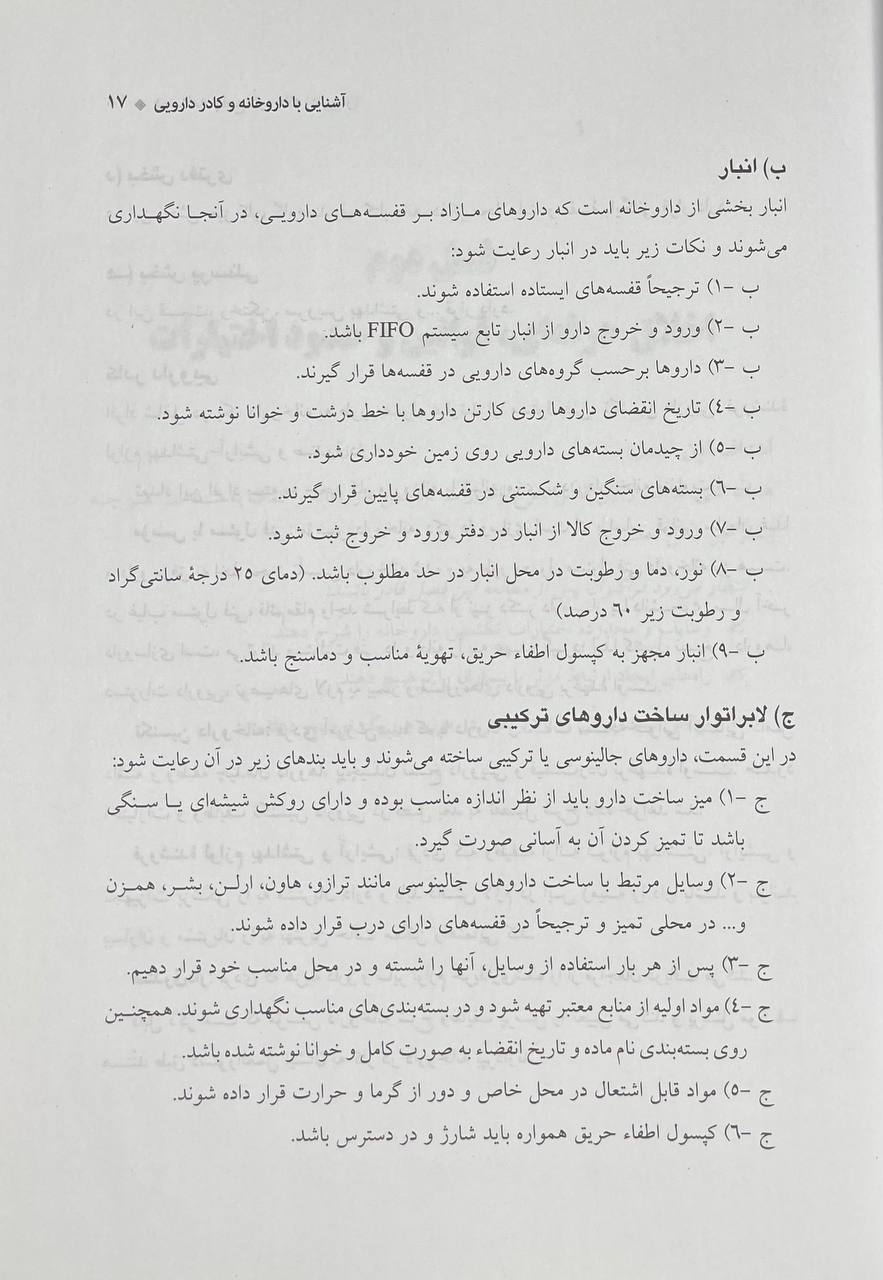 آشنایی با داروخانه و کادر دارویی ◆ ۱۷
ب) انبار
انبار بخشی از داروخانه است که داروهای مازاد بر قفسه‌های دارویی، در آنجا نگهداری
می‌شوند و نکات زیر باید در انبار رعایت شود:
ب -۱) ترجیحاً قفسه‌های ایستاده استفاده شوند.
ب -۲) ورود و خروج دارو از انبار تابع سیستم FIFO باشد.
ب -۳) داروها برحسب گروه‌های دارویی در قفسه‌ها قرار گیرند.
ب -٤) تاریخ انقضای داروها روی کارتن داروها با خط درشت و خوانا نوشته شود.
ب -٥) از چیدمان بسته‌های دارویی روی زمین خودداری شود.
ب -٦) بسته‌های سنگین و شکستنی در قفسه‌های پایین قرار گیرند.
ب -۷) ورود و خروج کالا از انبار در دفتر ورود و خروج ثبت شود.
ب -۸) نور، دما و رطوبت در محل انبار در حد مطلوب باشد. (دمای ۲٥ درجهٔ سانتی‌گراد
و رطوبت زیر ٦۰ درصد)
ب -۹) انبار مجهز به کپسول اطفاء حریق، تهویهٔ مناسب و دماسنج باشد.
ج) لابراتوار ساخت داروهای ترکیبی
در این قسمت، داروهای جالینوسی یا ترکیبی ساخته می‌شوند و باید بندهای زیر در آن رعایت شود:
ج -۱) میز ساخت دارو باید از نظر اندازه مناسب بوده و دارای روکش شیشه‌ای یا سنگی
باشد تا تمیز کردن آن به آسانی صورت گیرد.
ج -۲) وسایل مرتبط با ساخت داروهای جالینوسی مانند ترازو، هاون، ارلن، بشر، همزن
و... در محلی تمیز و ترجیحاً در قفسه‌های دارای درب قرار داده شوند.
ج -۳) پس از هر بار استفاده از وسایل، آنها را شسته و در محل مناسب خود قرار دهیم.
ج -٤) مواد اولیه از منابع معتبر تهیه شود و در بسته‌بندی‌های مناسب نگهداری شوند. همچنین
روی بسته‌بندی نام ماده و تاریخ انقضاء به صورت کامل و خوانا نوشته شده باشد.
ج -٥) مواد قابل اشتعال در محل خاص و دور از گرما و حرارت قرار داده شوند.
ج -٦) کپسول اطفاء حریق همواره باید شارژ و در دسترس باشد.